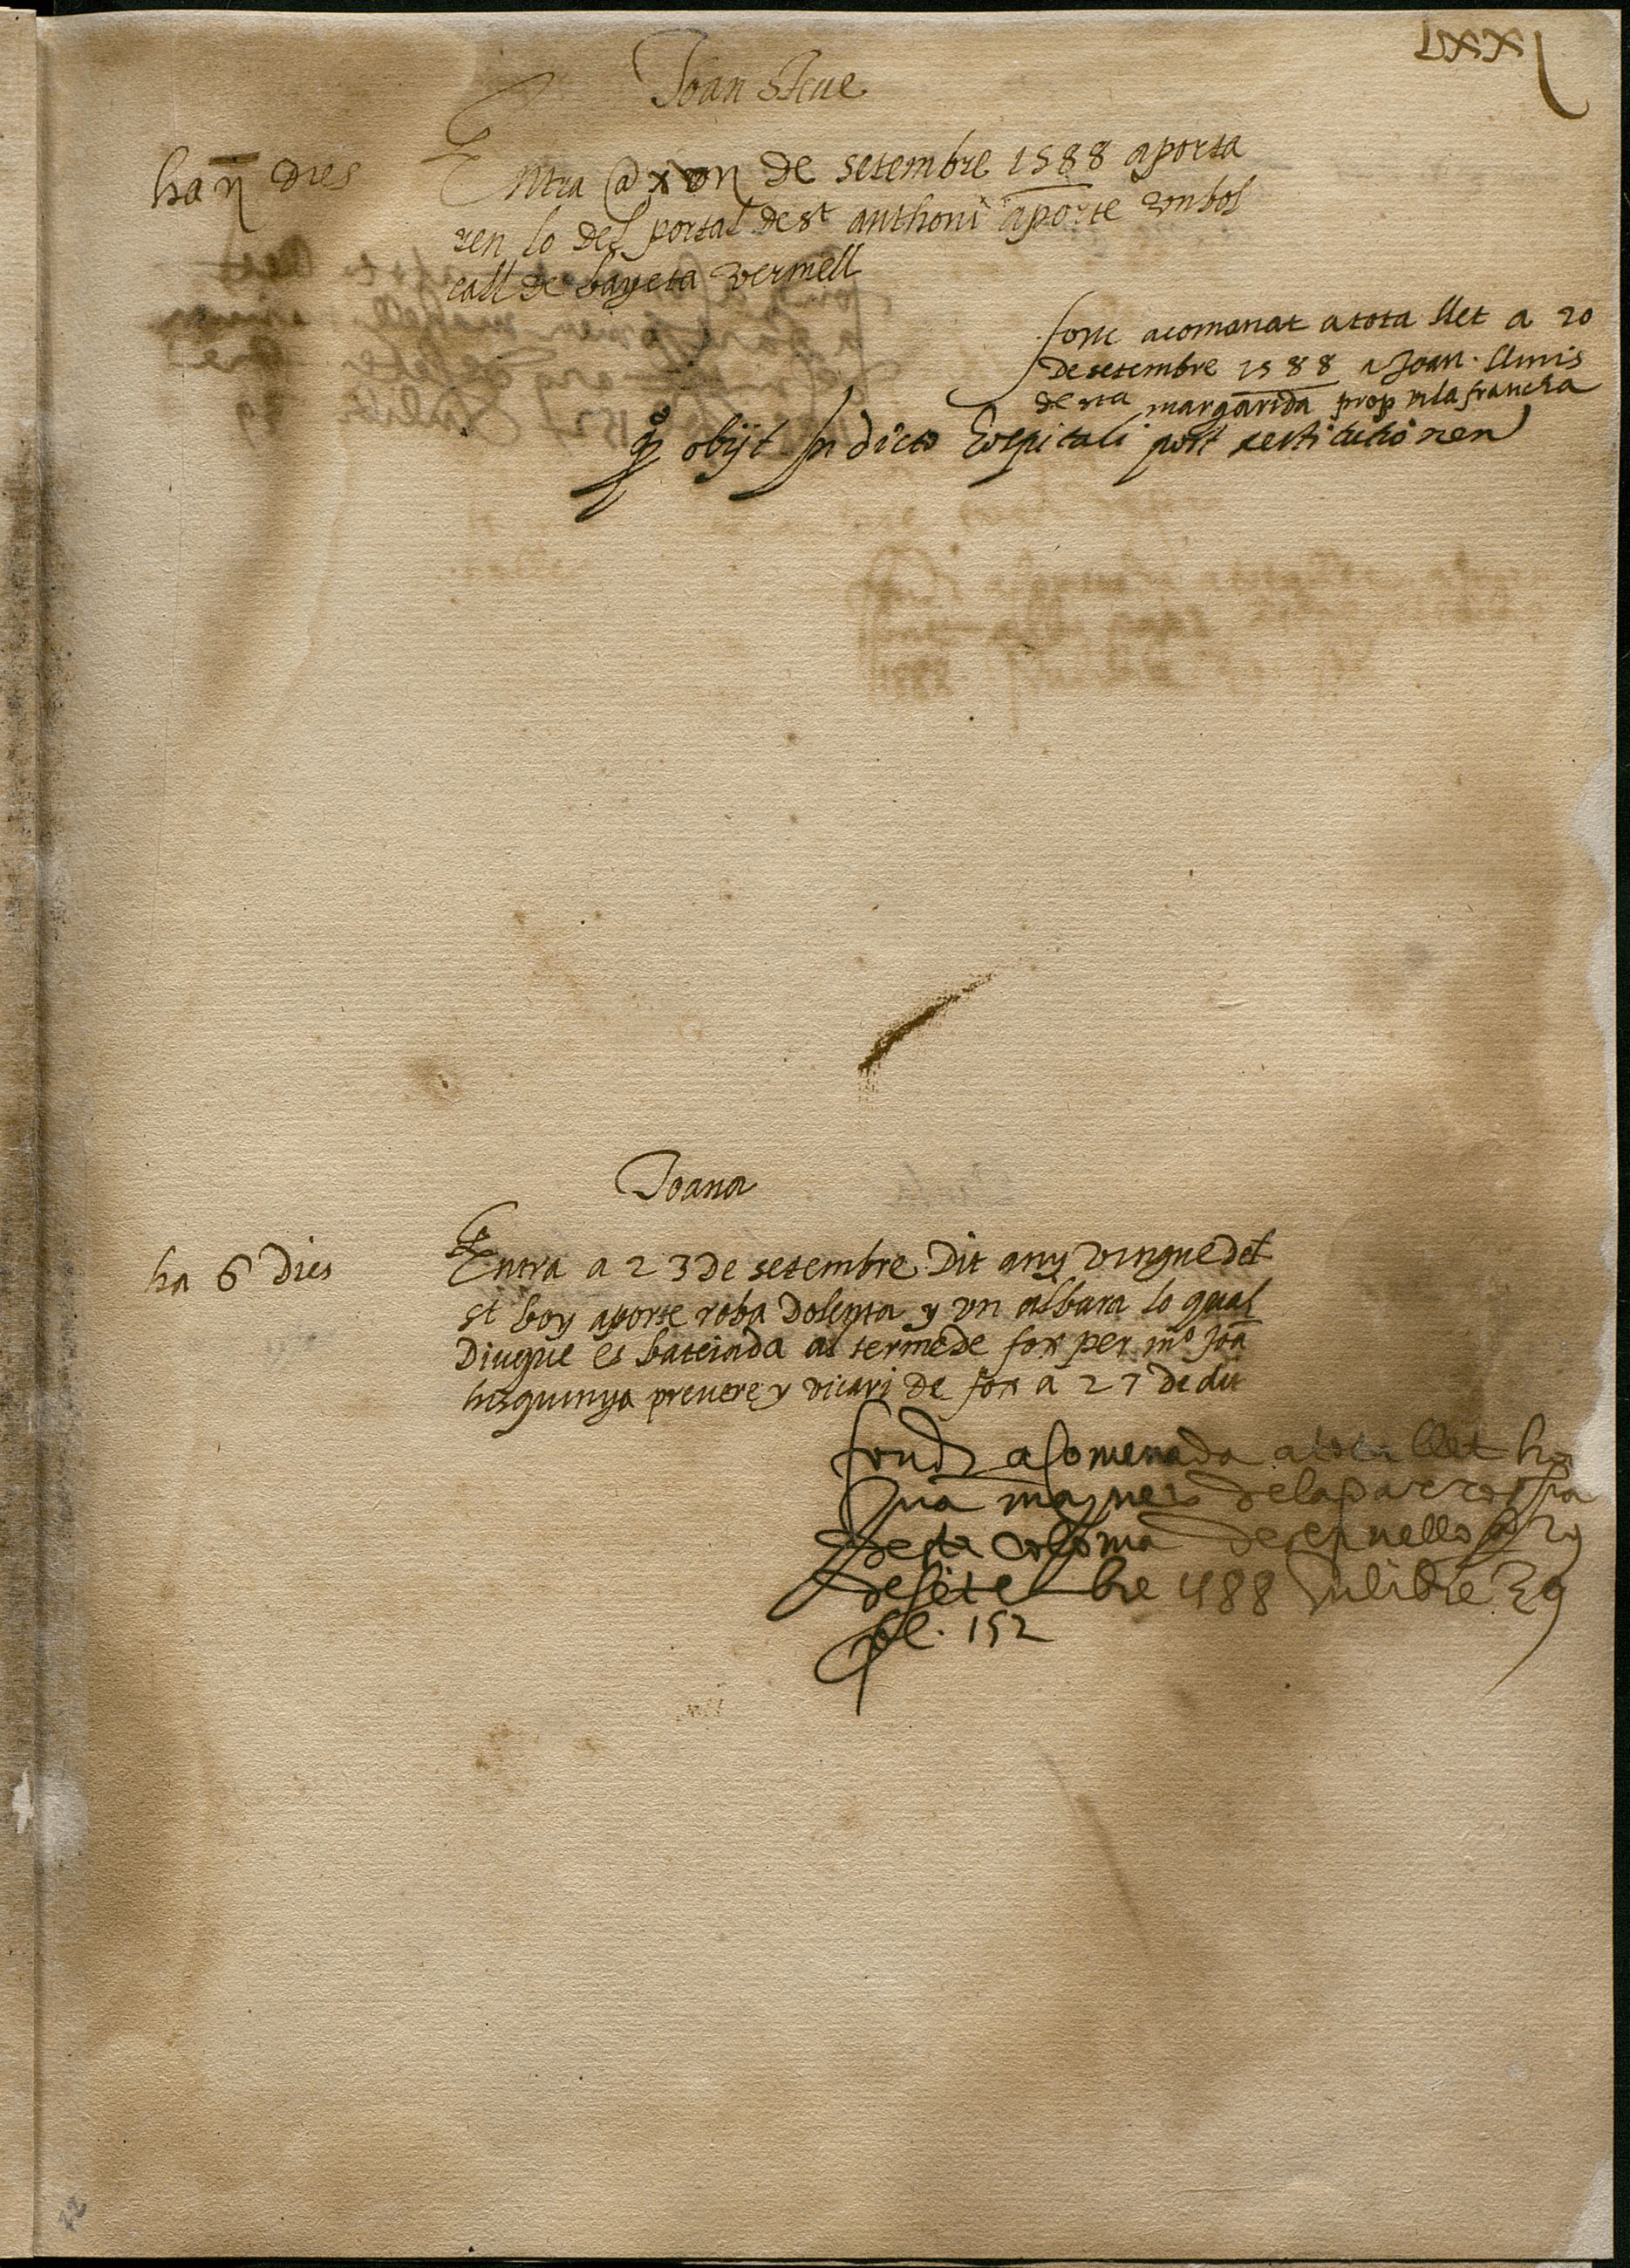 Lxxj
Joan Steue
ha ij dies
Entra a xvij de setembre 1588 aporta
ren lo del portal de st anthoni aporte vn bol
call de bayeta vermell
fonc acomanat a tota llet a 20
de setembre 1588 a Joan lluis
de sta margarida prop vilafrancha
obijt in dicto hospitali post restitutionen
Joana
ha 6 dies
Entra a 23 de setembre dit any vingue de
st boy aporte roba dolenta y vn albara lo qual
diugue es bateiada al terme de fox per mo Joā
prevere y vicari de fox a 27 de dit
fonch acomenada a tota llet ha
de la parrochia
de sta coloma de
de setembre 1588 en libre 29
fol. 152
22